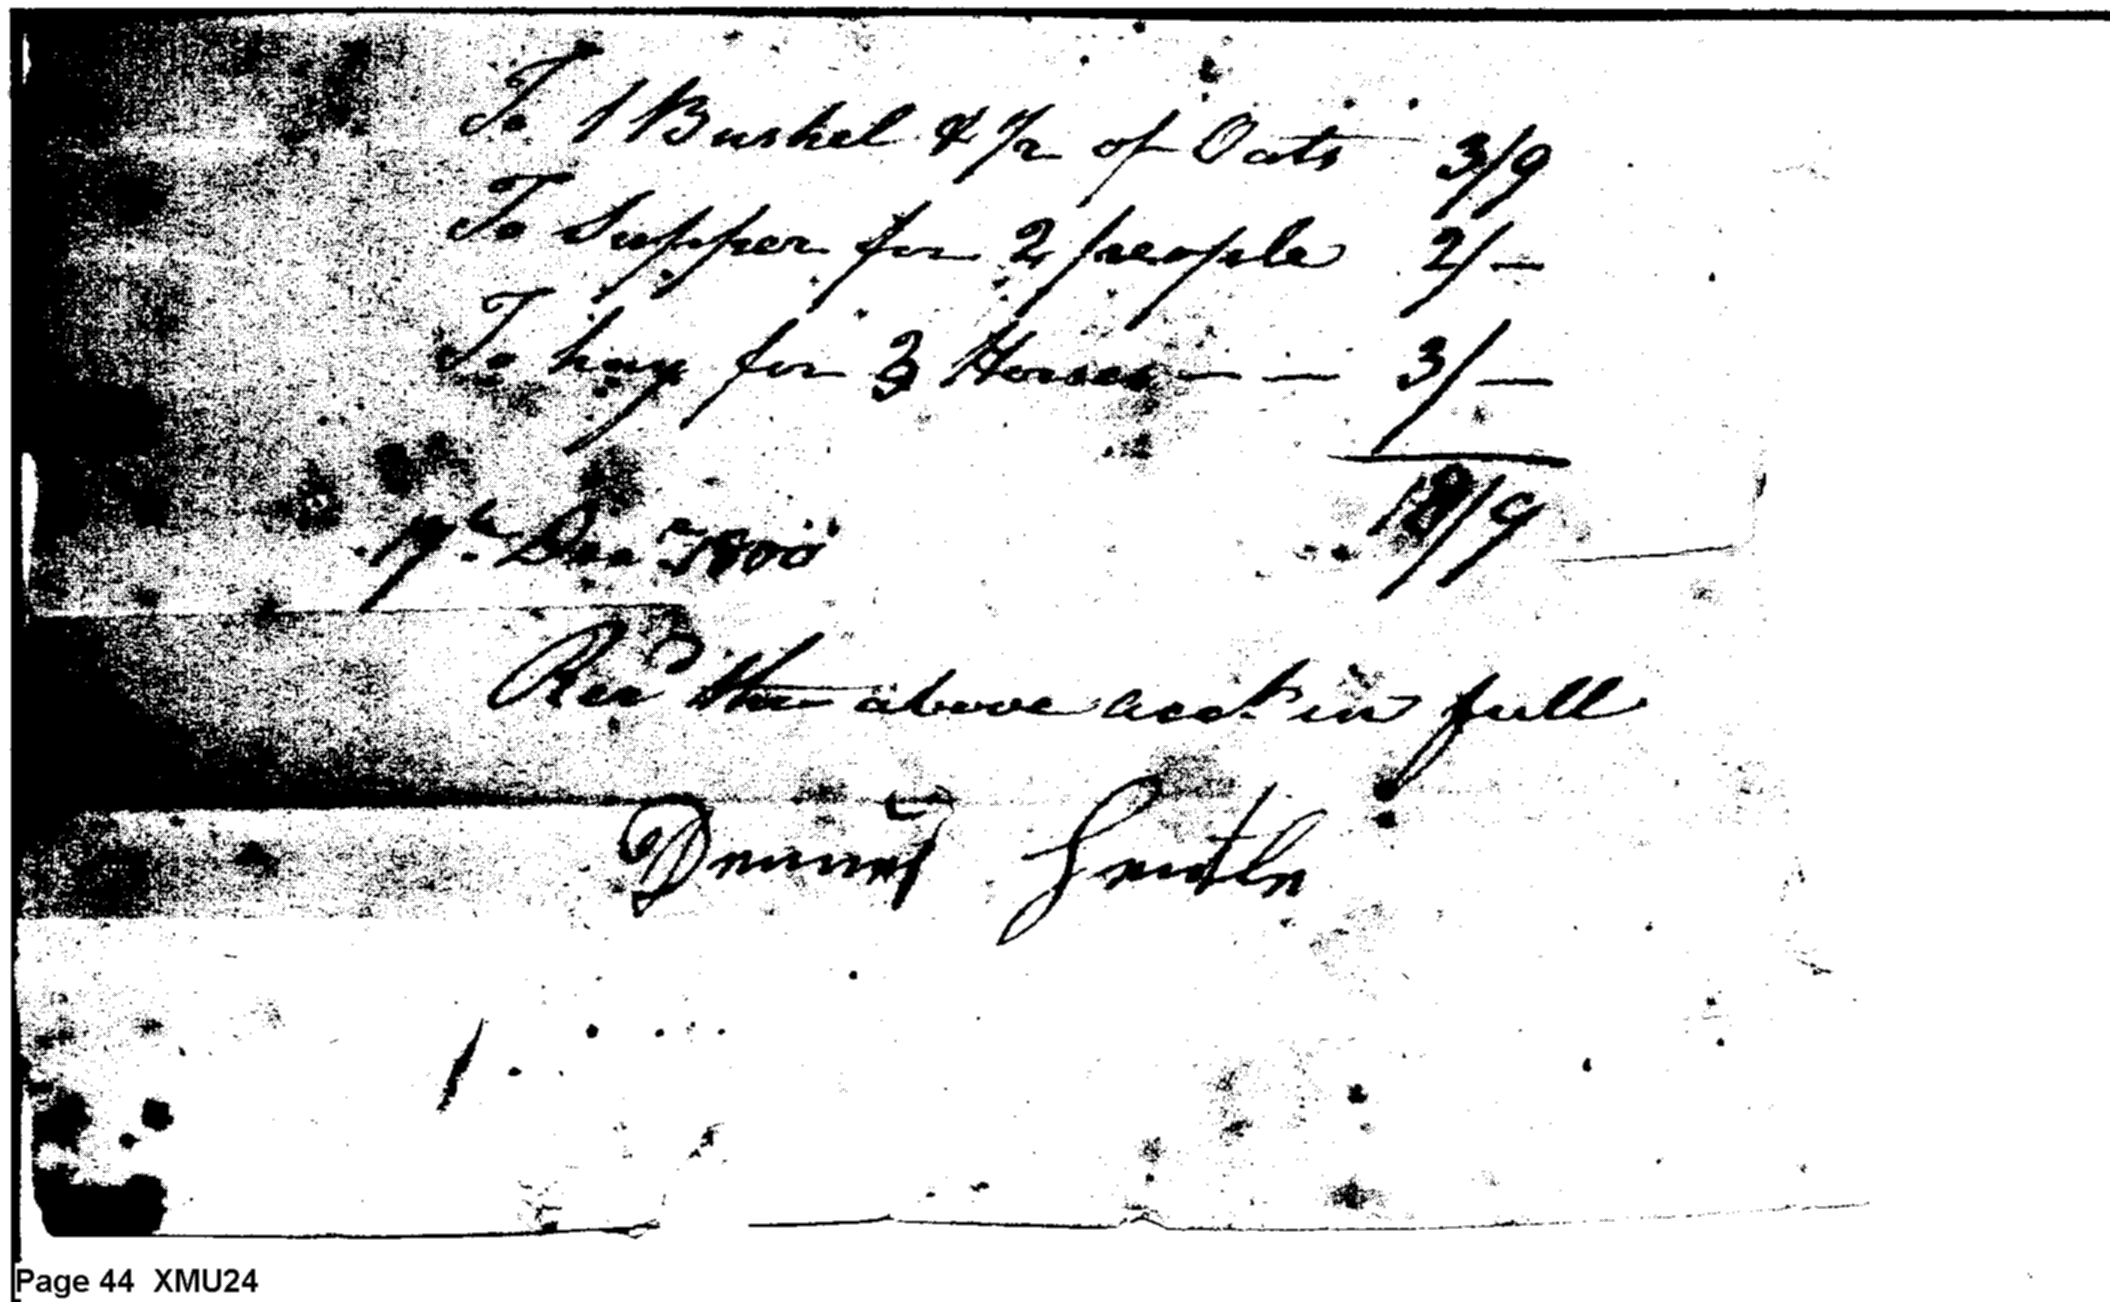 To 1 Bushel & 1/2 of Oats 3/9
To Supper for 2 people 2/-
To hay for 3 Horses — — 3/-
18/9
Decr 1800
Recd the above acct in full
Smith
Page 44 XMU24